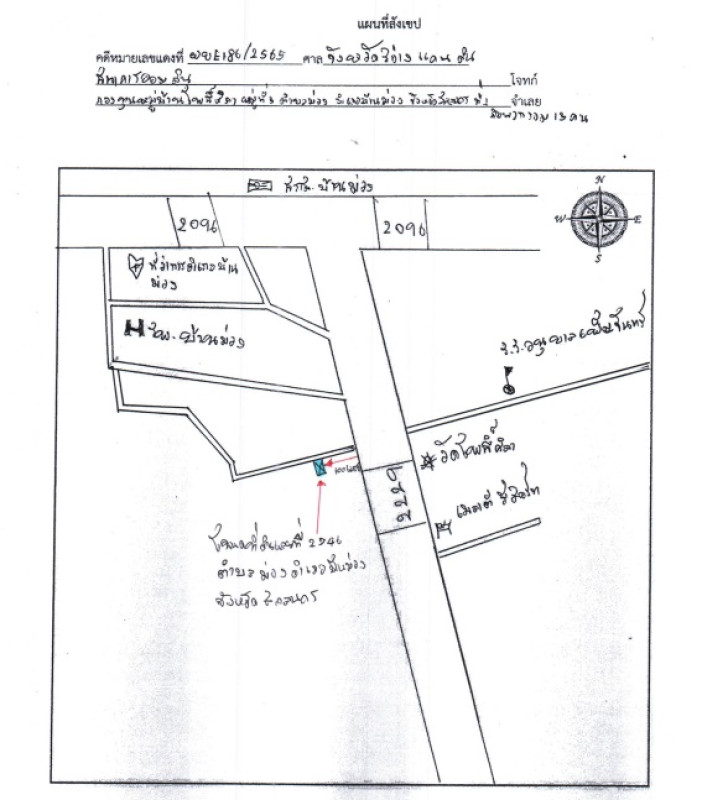 แผนที่สังเขป
คดีหมายเลขแดงที่ ผบE186/2565 ศาล จังหวัดสว่างแดนดิน
ธนาคารออมสิน โจทก์
กองทุนหมู่บ้านโพธิ์ศิลา หมู่ที่ 6 ตำบลม่วง อำเภอบ้านม่วง จังหวัดสกลนคร ที่ 1 จำเลย
กับพวกรวม 13 คน
สภ.บ้านม่วง
N
W E
S
2096 2096
ที่ว่าการอำเภอบ้าน
ม่วง
รพ.บ้านม่วง
ร.ร.อนุบาล
วัดโพธิ์ศิลา
รีสอร์ท
โฉนดที่ดินเลขที่ 2946
ตำบลม่วง อำเภอบ้านม่วง
จังหวัดสกลนคร